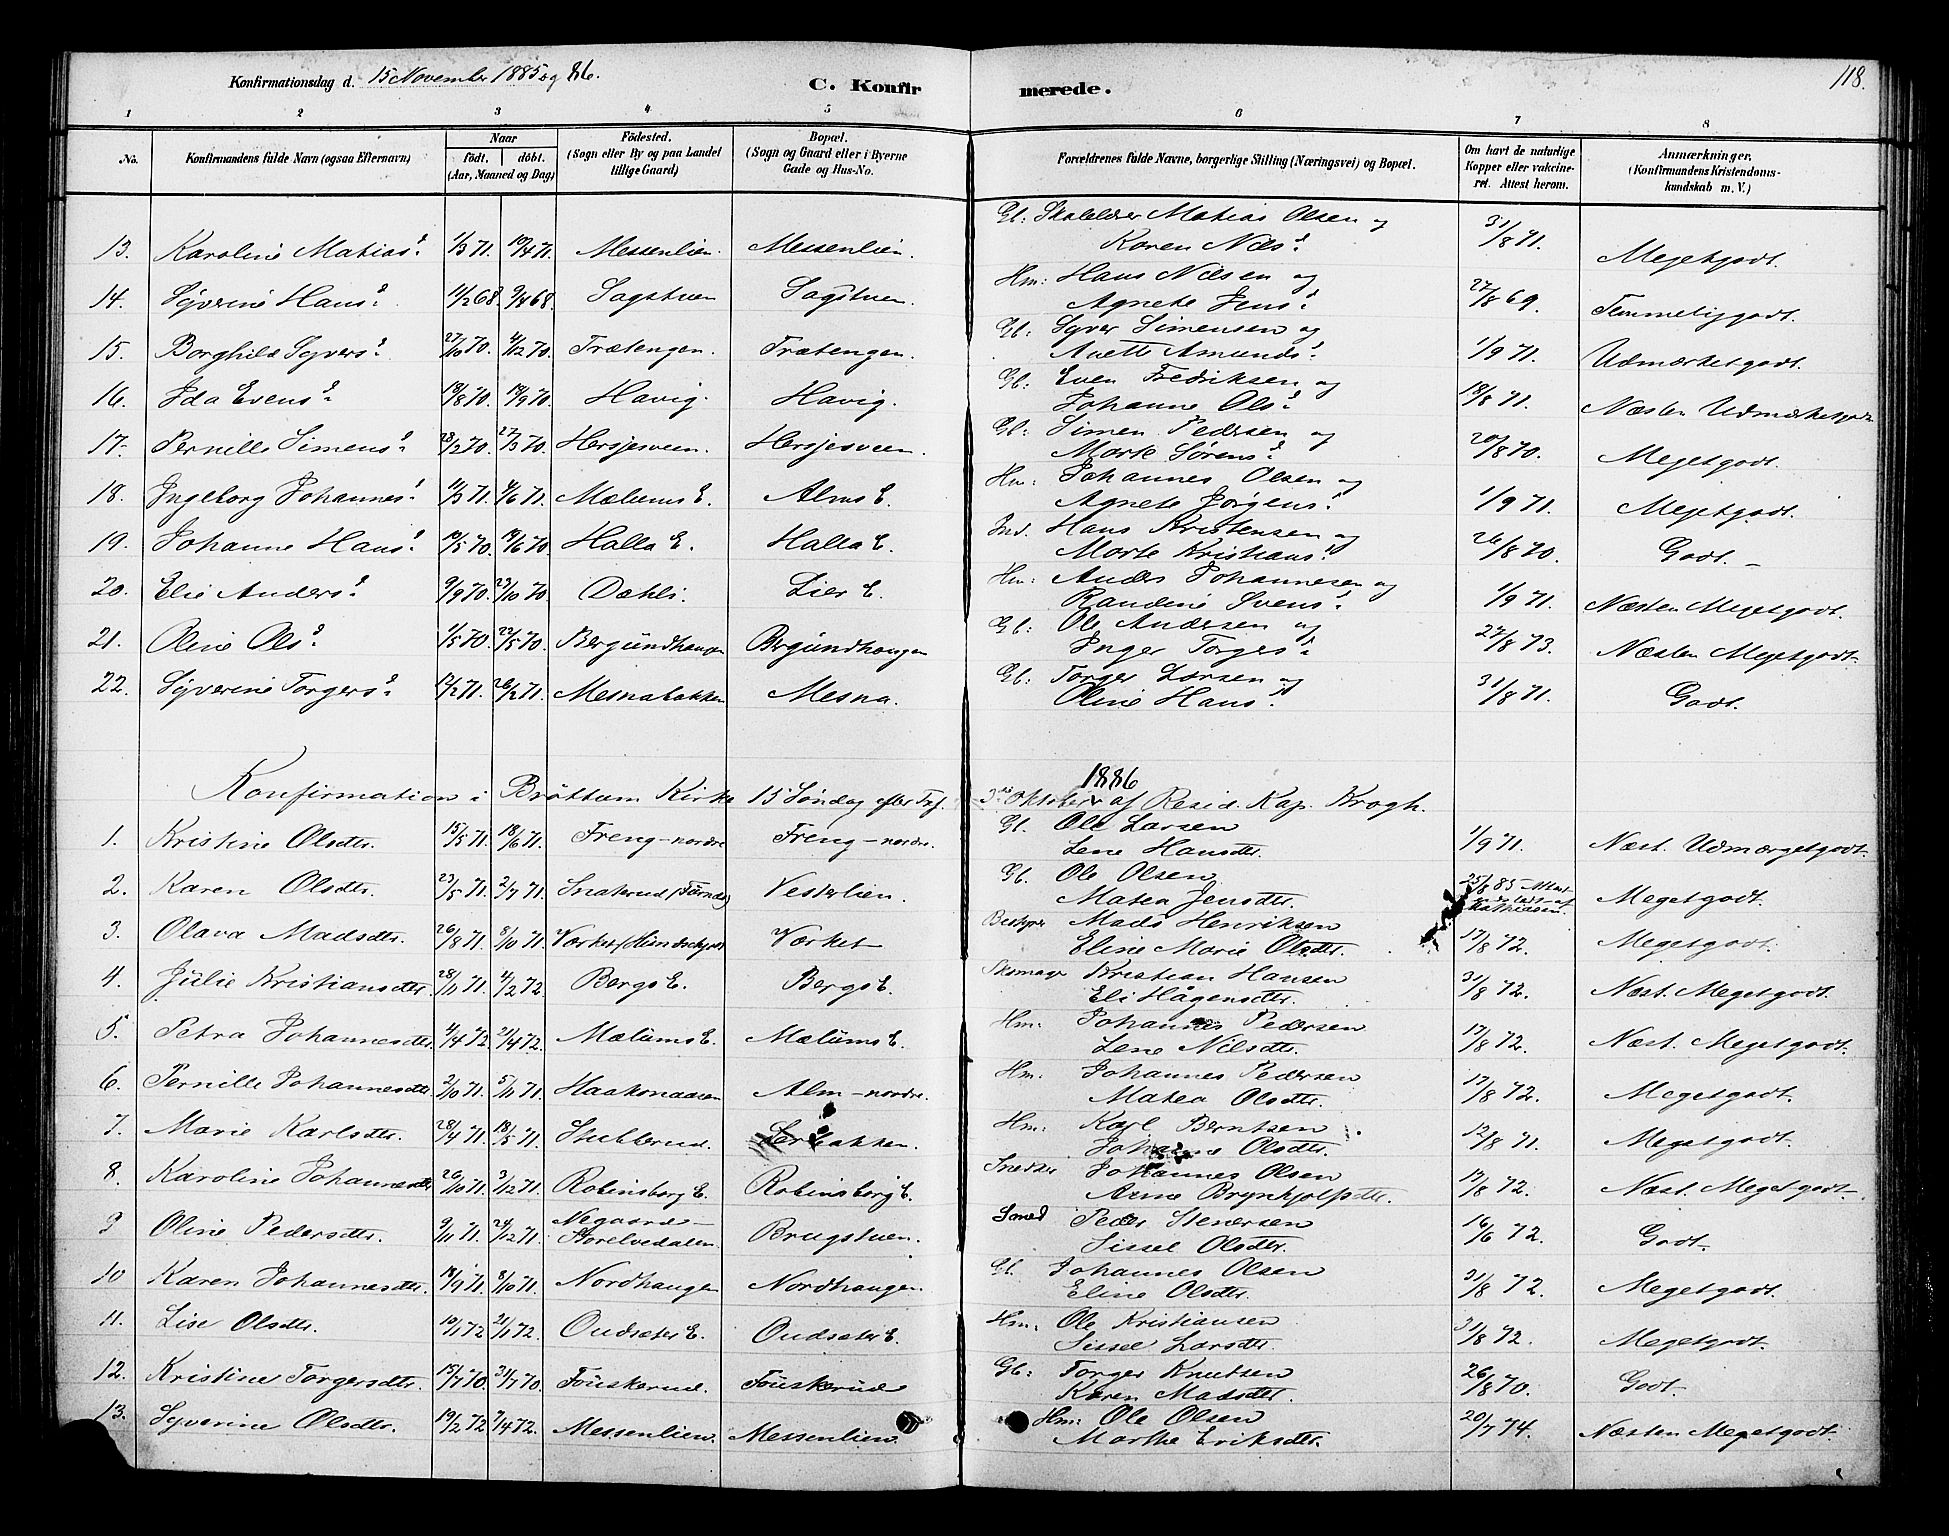 Konfirmationsdag d. 15 November 1885 og 86.
C. Konfirmerede.
118.
1 2 3 4 5 6 7 8
No. Konfirmandens fulde Navn (ogsaa Efternavn) Naar født. døbt. (Aar, Maaned og Dag) Födested. (Sogn eller By og paa Landet tillige Gaard) Bopæl. (Sogn og Gaard eller i Byerne Gade og Hus-No. Forældrenes fulde Navne, borgerlige Stilling (Næringsvei) og Bopæl. Om havt de naturlige Kopper eller vakcineret. Attest herom. Anmærkninger. (Konfirmandens Kristendomskundskab m. V.)
13. Karoline Matias? 1/3 71. 10/4 71. Messenlien. Messenlien. Gb: Skolelærer Matias Olsen og Karen Nils? 31/8 71. Megetgodt.
14. Syverine Hans? 11/2 68. 9/4 68. Sagstuen Sagstuen. Hm: Hans Nilsen og Agnete Jens? 27/8 69. Temmeliggodt.
15. Borghild Syvers? 27/10 70. 4/12 70. Trætengen. Trætengen. Gb: Syver Simensen og Anette Amunds? 1/9 71. Udmærketgodt.
16. Ida Evens? 19/8 70. 18/9 70. Havig. Havig. Gb: Even Fredriksen og Johanne Ols? 18/8 71. Næsten Udmærketgodt
17. Pernille Simens? 23/2 70. 27/3 70. Hersjesveen. Hersjesveen. Gb: Simen Pedersen og Marte Sørens? 20/8 70. Megetgodt.
18. Ingeborg Johannes? 11/3 71. 4/6 71. Mælums E. Alms E. Hm: Johannes Olsen og Agnete Jørgens? 1/9 71. Megetgodt.
19. Johanne Hans? 19/5 70. 19/6 70. Halla E. Halla E. Ind. Hans Kristensen og Marte Kristians? 26/8 70. Godt.
20. Elie Anders? 9/9 70. 23/10 70. Dæhli. Lier E. Hm: Anders Johannesen og Randine Svens? 1/9 71. Næsten Megetgodt.
21. Oline Ols? 1/5 70. 22/5 70. Bergundhaugen Bergundhaugen Gb: Ole Andersen og Inger Torgers? 27/8 73. Næsten Megetgodt.
22. Syverine Torgers? 17/2 71. 26/2 71. Mesnabakken Mesna. Gb: Torger Larsen og Oline Hans? 31/8 71. Godt.
Konfirmation i Brøttum Kirke 15 Søndag efter Tref. 3die Oktober 1886 af Resid. Kap. Krogh.
1. Kristine Olsdtr. 15/5 71. 18/6 71. Freng-nordre Freng-nordre. Gb. Ole Larsen Lene Hansdtr. 1/9 71. Næst. Udmærgetgodt.
2. Karen Olsdtr. 23/5 71. 2/7 71. Snakerud Vesterlien. Gb. Ole Olsen Matea Jensdtr. 25/8 85 Megetgodt.
3. Olava Madsdtr. 26/8 71. 8/10 71. Værket Værket Bestyrer Mads Henriksen Eline Marie Olsdtr. 17/8 72. Megetgodt.
4. Julie Kristiansdtr 28/11 71. 4/2 72. Bergs E. Bergs E. Skomager Kristian Hansen Eli Hågensdtr. 31/8 72. Næst. Megetgodt.
5. Petra Johannesdtr. 4/4 72. 21/4 72. Mælums E. Mælums E. Hm: Johannes Pedersen Lene Nilsdtr. 17/8 72. Næst. Megetgodt.
6. Pernille Johannesdtr 2/10 71. 5/11 71. Haakonaasen Alm-nordre. Hm. Johannes Pedersen Matea Olsdtr. 17/8 72. Megetgodt.
7. Marie Karlsdtr. 28/4 71. 18/5 71. Stubberud. Lerbakken. Hm: Karl Berntsen Johanne Olsdtr. 12/8 71. Megetgodt.
8. Karoline Johannesdtr 26/10 71. 3/12 71. Robinsborg E. Robinsberg E. Snedker Johannes Olsen Arne Brynhjolfsdtr. 13/8 72. Næst. Megetgodt.
9 Oline Pedersdtr. 9/11 71. 24/12 71. Negaard Storelvedalen Brugstuen. Smed Peder Stenersen Sissel Olsdtr. 16/6 72. Godt.
10 Karen Johannesdtr. 18/9 71. 8/10 71. Nordhaugen Nordhaugen. Gb. Johannes Olsen Eline Olsdtr. 31/8 72. Megetgodt.
11. Lise Olsdtr. 10/1 72 21/1 72. Oudsæter E. Oudsæter E. Hm: Ole Kristiansen Sissel Larsdtr. 31/8 72. Megetgodt.
12. Kristine Torgersdtr. 15/7 70. 31/7 70. Fouskerud. Fouskerud Gb: Torger Knutsen Karen Madsdtr. 26/8 70. Godt.
13. Syverine Olsdtr. 19/2 72 7/4 72. Messenlien. Messenlien. Hm: Ole Olsen Marthe Eriksdtr. 20/7 74. Næsten Megetgodt.